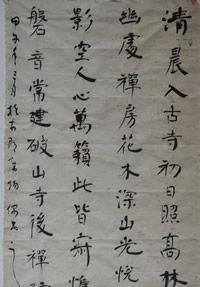 清晨入古寺初日照高林
幽處禪房花木深山光悅
影空人心萬籟此皆寂惟
磬音常建破山寺後禪
甲午年三月於